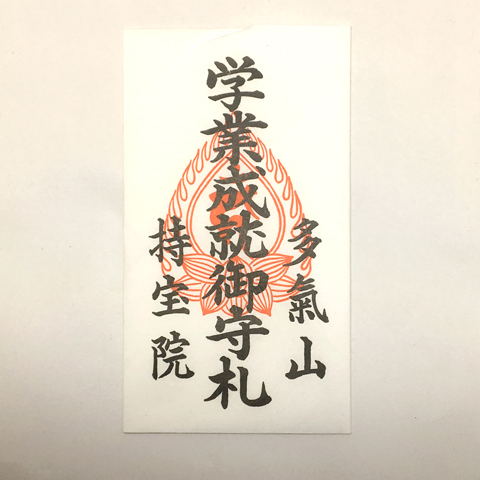 多氣山
学業成就御守札
持宝院